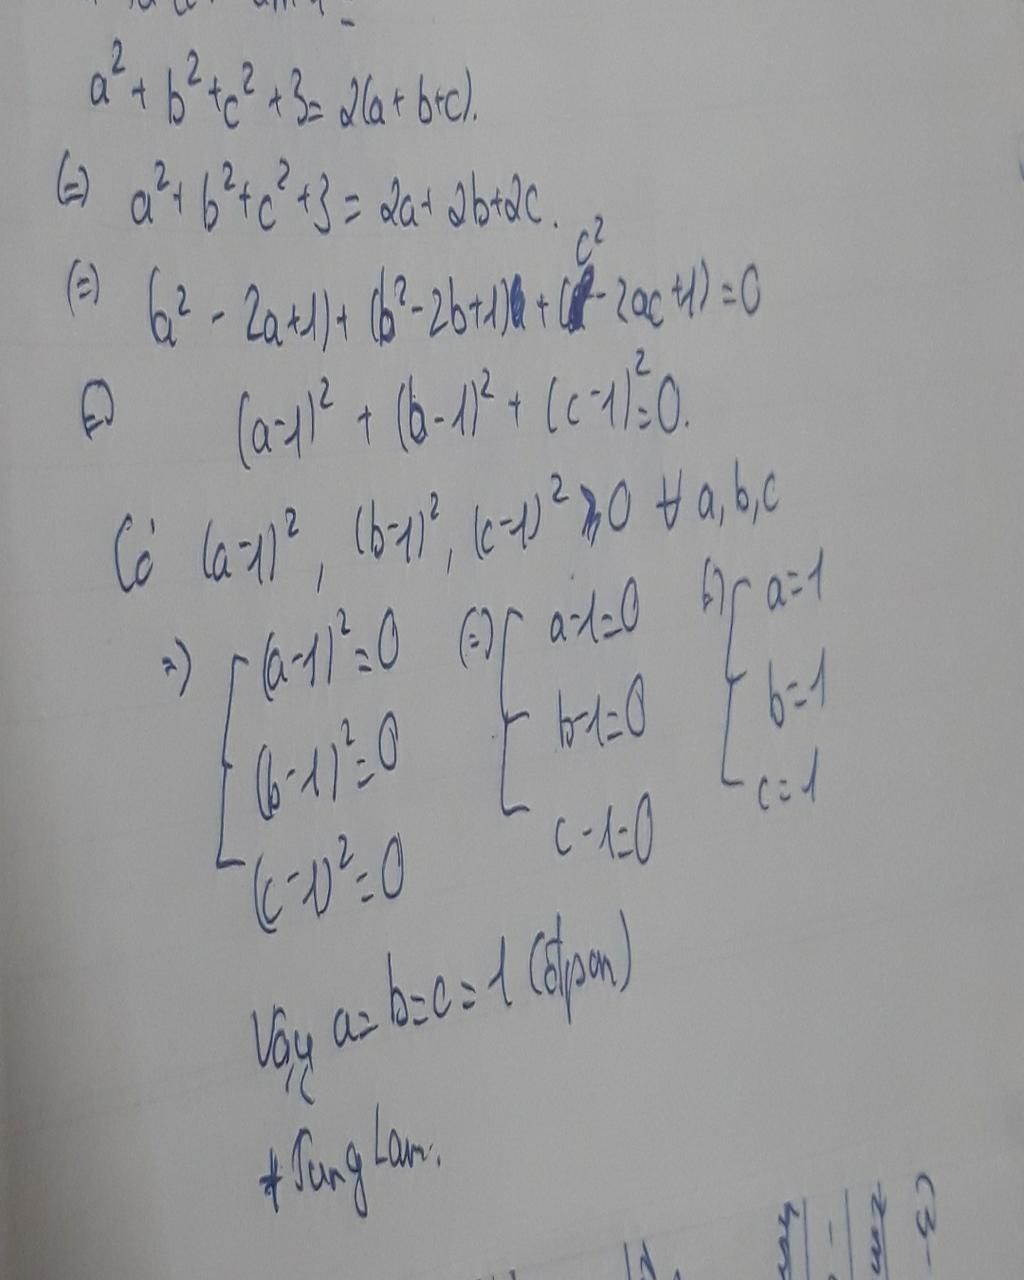 a² + b² + c² + 3 = 2(a + b + c).
(=) a² + b² + c² + 3 = 2a + 2b + 2c.
(=) (a² - 2a + 1) + (b² - 2b + 1) + (c² - 2ac + 1) = 0
(=) (a-1)² + (b-1)² + (c-1)² = 0.
Có (a-1)², (b-1)², (c-1)² ≥ 0 ∀ a, b, c
=) [ (a-1)² = 0 (=) [ a-1=0 (=) [ a=1
(b-1)² = 0 b-1=0 b=1
(c-1)² = 0 c-1=0 c=1
Vậy a = b = c = 1 (đpcm)
* Tung Lam.